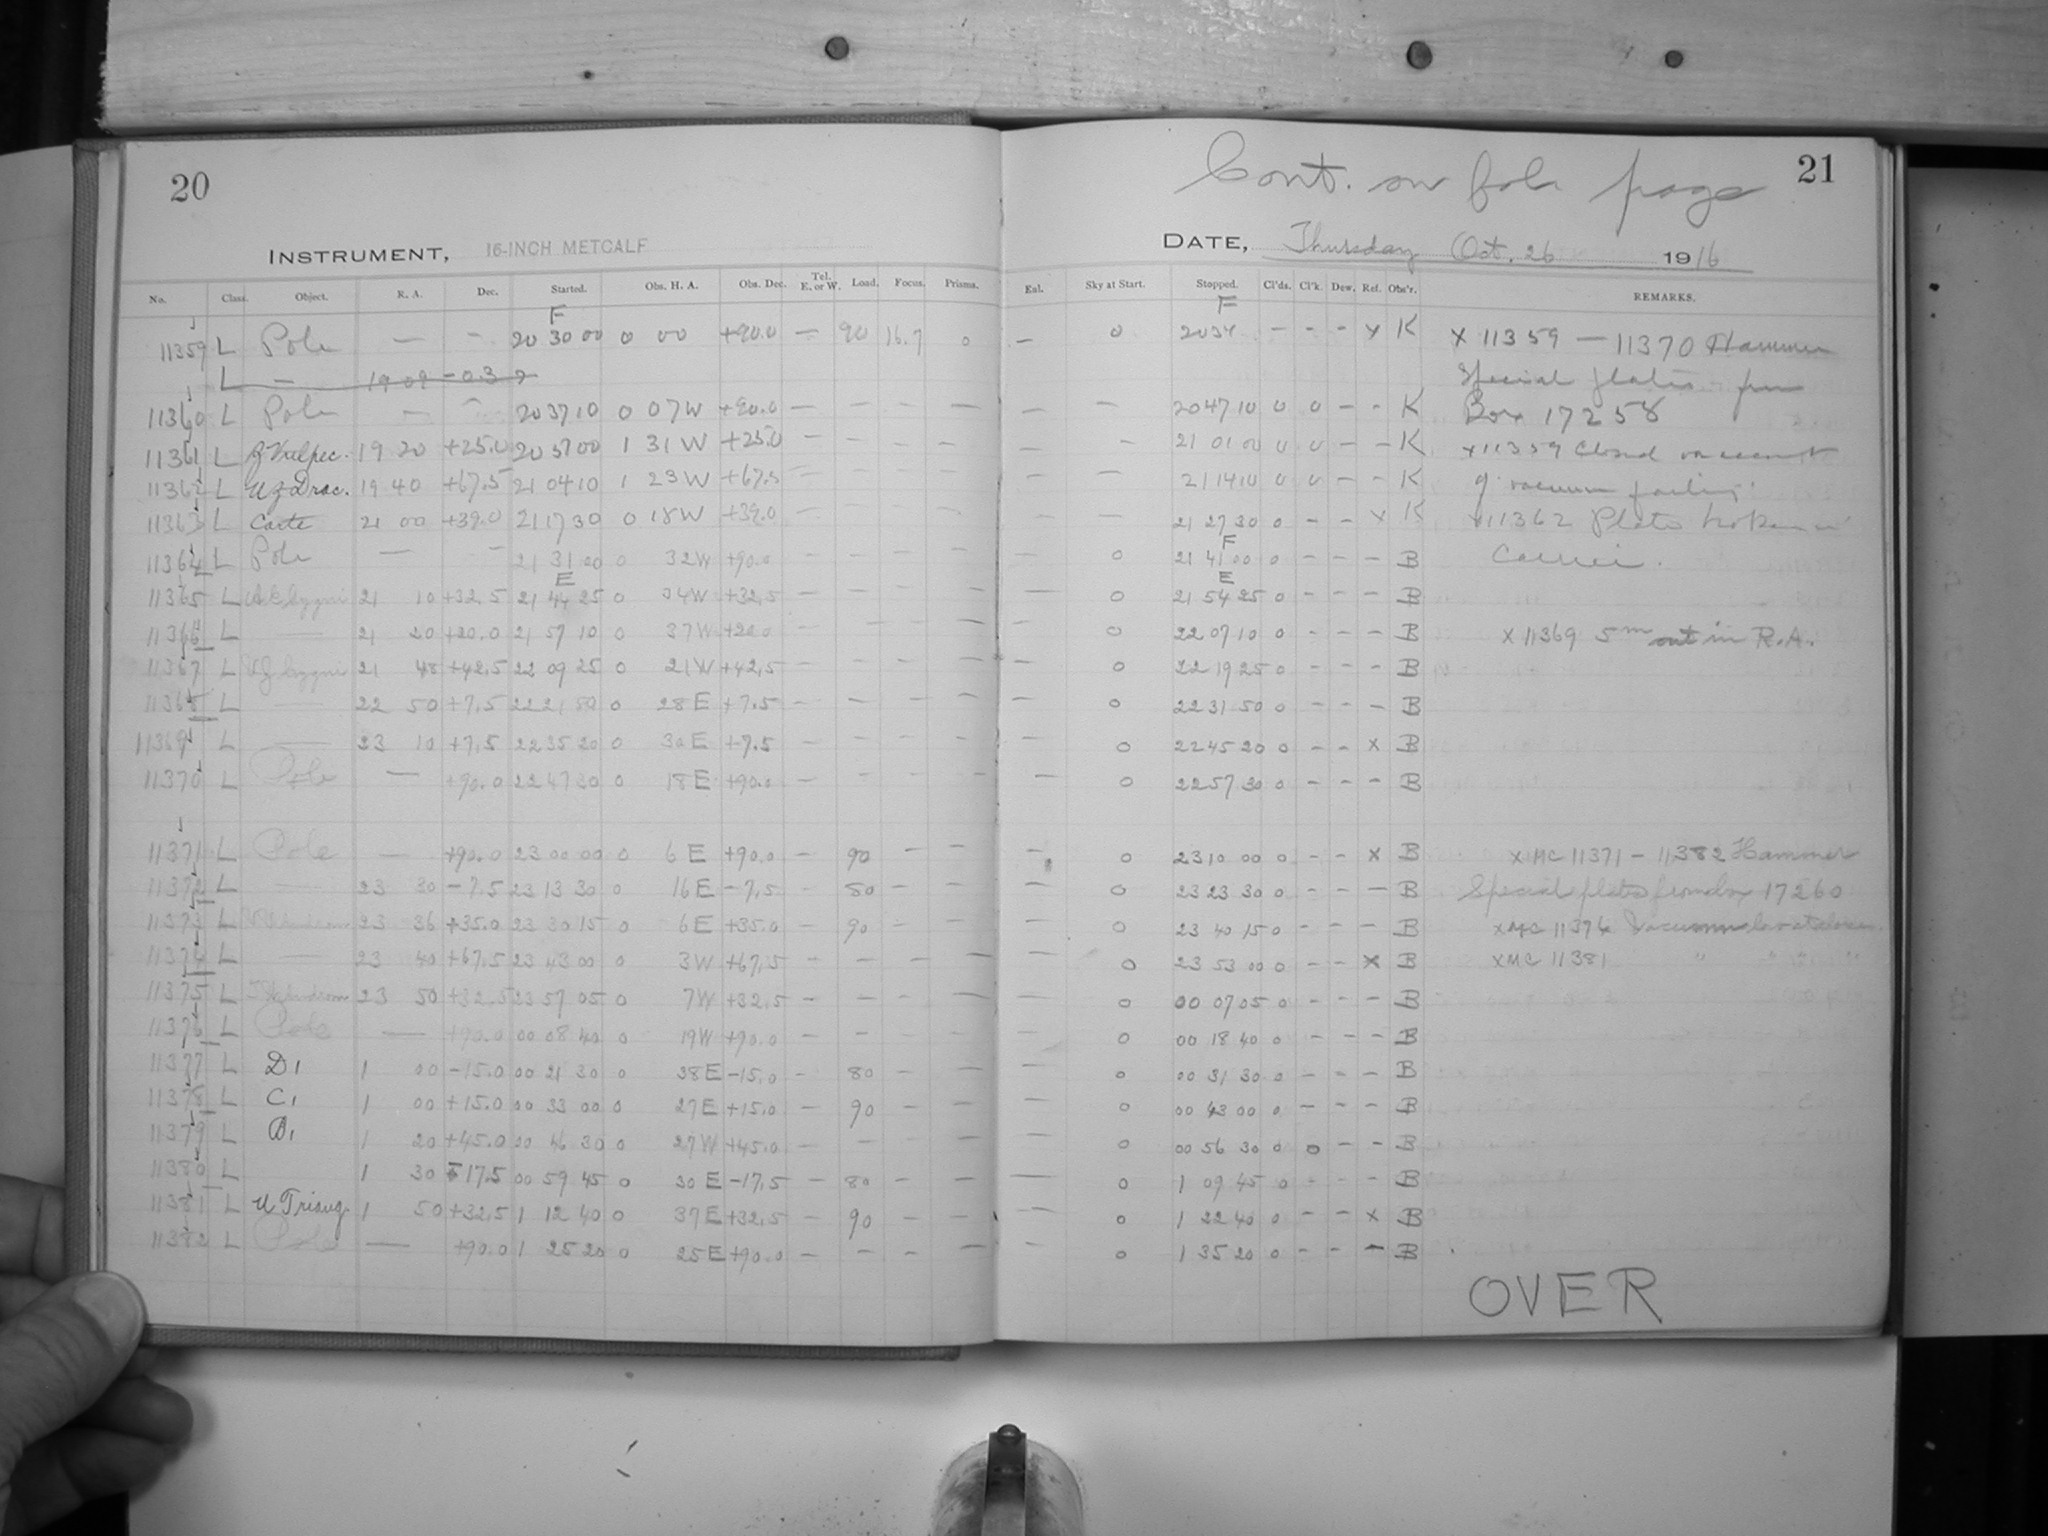 20
INSTRUMENT, 16-INCH METCALF
No. Class. Object. R. A. Dec. Started. Obs. H. A. Obs. Dec. Tel. E. or W. Load. Focus. Prisms.
F
11359 L Pole — - 20 30 00 0 00 +90.0 — 90 16.7 0
L — 19 09 -0.3
11360 L Pole — — 20 37 10 0 07 W +90.0 — — — — —
11361 L Z Vulpec. 19 20 +25.0 20 57 00 1 31 W +25.0 — — — — —
11362 L UZ Drac. 19 40 +67.5 21 04 10 1 23 W +67.5 — — — — —
11363 L Carte 21 00 +39.0 21 17 30 0 18 W +39.0 — — — — —
11364 L Pole — — 21 31 00 0 32 W +90.0 — — — — —
E
11365 L Cygni 21 10 +32.5 21 44 25 0 34 W +32.5 — — — — —
11366 L — 21 20 +20.0 21 57 10 0 37 W +20.0 — — — — —
11367 L Cygni 21 48 +42.5 22 09 25 0 21 W +42.5 — — — — —
11368 L — 22 50 +7.5 22 21 50 0 28 E +7.5 — — — — —
11369 L — 23 10 +7.5 22 35 20 0 30 E +7.5 — — — — —
11370 L Pole — +90.0 22 47 30 0 18 E +90.0 — — — — —
11371 L Pole — +90.0 23 00 00 0 6 E +90.0 — 90 — —
11372 L — 23 30 -7.5 23 13 30 0 16 E -7.5 — 80 — —
11373 L 23 36 +35.0 23 30 15 0 6 E +35.0 — 90 — —
11374 L — 23 40 +67.5 23 43 00 0 3 W +67.5 — — — —
11375 L 23 50 +32.5 23 57 05 0 7 W +32.5 — — — —
11376 L Pole — +90.0 00 08 40 0 19 W +90.0 — — — —
11377 L D1 1 00 -15.0 00 21 30 0 38 E -15.0 — 80 — —
11378 L C1 1 00 +15.0 00 33 00 0 27 E +15.0 — 90 — —
11379 L B1 1 20 +45.0 00 46 30 0 27 W +45.0 — — — —
11380 L 1 30 -17.5 00 59 45 0 30 E -17.5 — 80 — —
11381 L U Triang. 1 50 +32.5 1 12 40 0 37 E +32.5 — 90 — —
11382 L Pole — +90.0 1 25 20 0 25 E +90.0 — — — —
Cont. on fol. page
21
DATE, Thursday Oct. 26 1916
Eal. Sky at Start. Stopped. Cl'ds. Cl'k. Dew. Ref. Obs'r. REMARKS.
F
— 0 20 34 — - - x K x 11359 — 11370 Hammer
Special plates from
— — 20 47 10 0 0 — - K Box 17258
— - 21 01 00 0 0 — — K x 11359 Closed on account
— — 21 14 10 0 0 — - K of vacuum failing
— — 21 27 30 0 - - x K x 11362 Plate broken in
F
— 0 21 41 00 0 — - — B Carrier.
E
— 0 21 54 25 0 - - - B
— 0 22 07 10 0 - - - B x 11369 5m out in R.A.
— 0 22 19 25 0 - - - B
— 0 22 31 50 0 - - - B
— 0 22 45 20 0 - - x B
— 0 22 57 30 0 - - - B
— 0 23 10 00 0 - - x B x MC 11371 - 11382 Hammer
— 0 23 23 30 0 - - — B Special plates from box 17260
— 0 23 40 15 0 - - - B x MC 11374 Vacuum
— 0 23 53 00 0 - - x B x MC 11381 " " "
— 0 00 07 05 0 - - - B
— 0 00 18 40 0 - - - B
— 0 00 31 30 0 - - - B
— 0 00 43 00 0 - - - B
— 0 00 56 30 0 0 - - B
— 0 1 09 45 0 - - - B
— 0 1 22 40 0 - - x B
— 0 1 35 20 0 - - - B
OVER